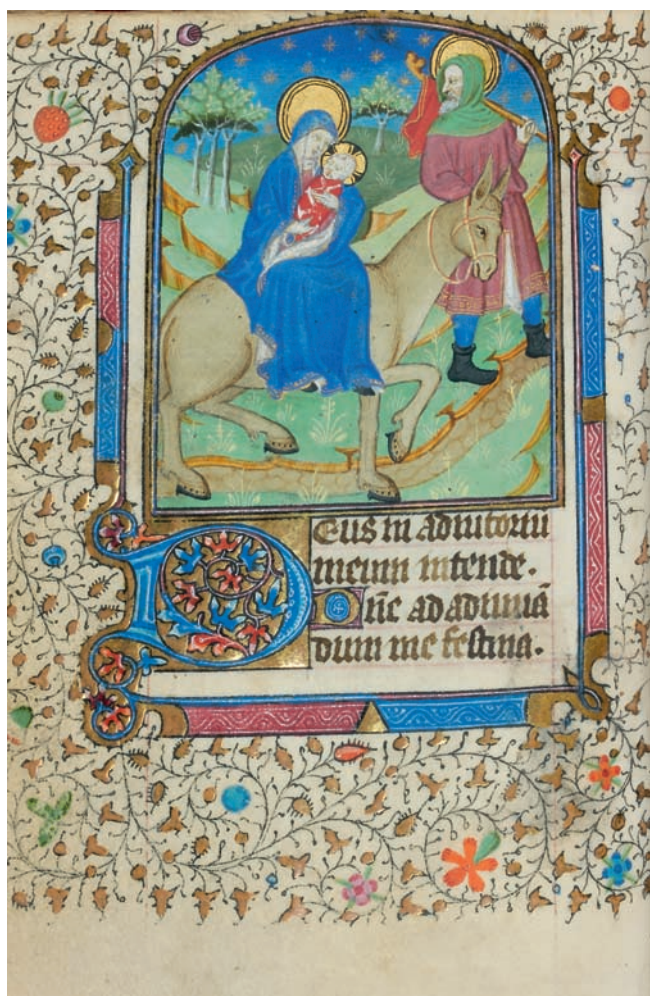 Deus in adiutoriu
meum intende.
Dne ad adiuua
dum me festina.